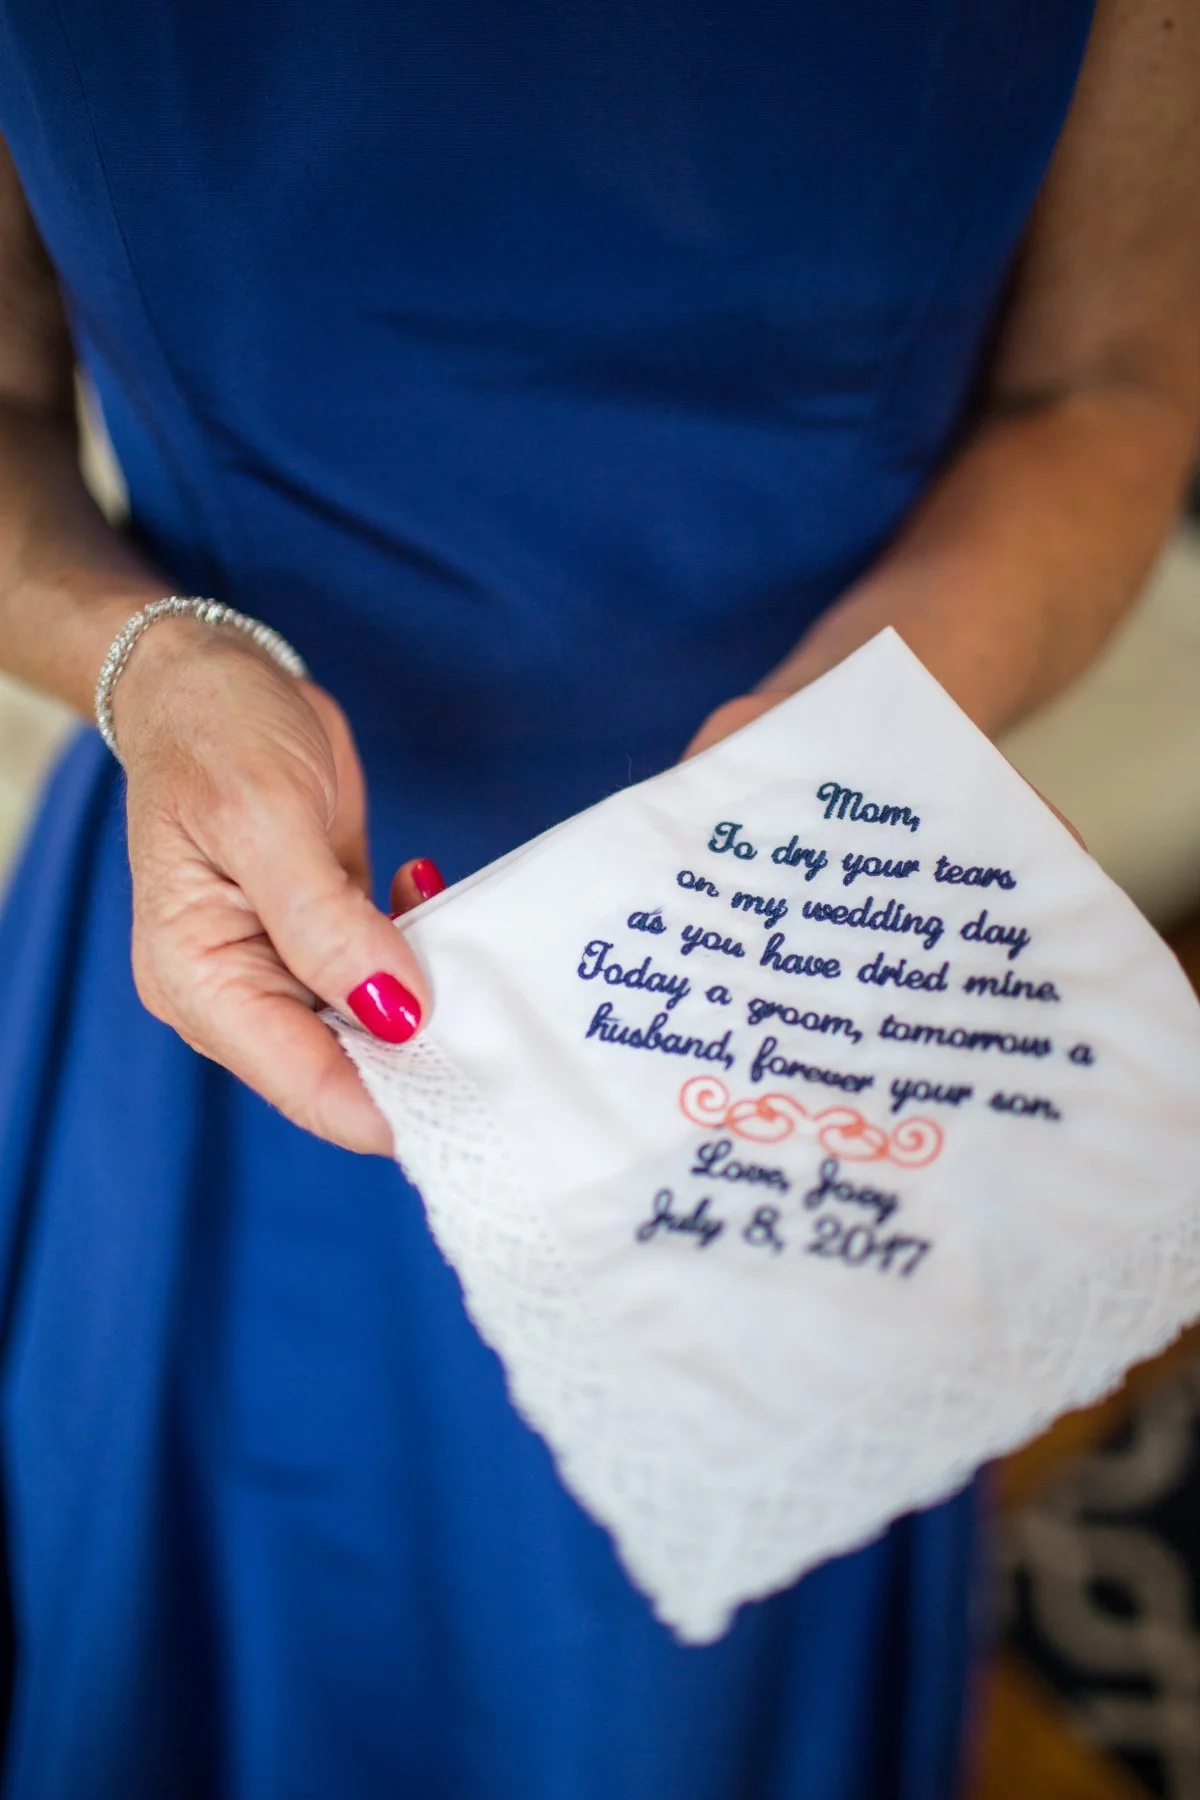 Mom,
To dry your tears
on my wedding day
as you have dried mine.
Today a groom, tomorrow a
husband, forever your son.
Love, Joey
July 8, 2017